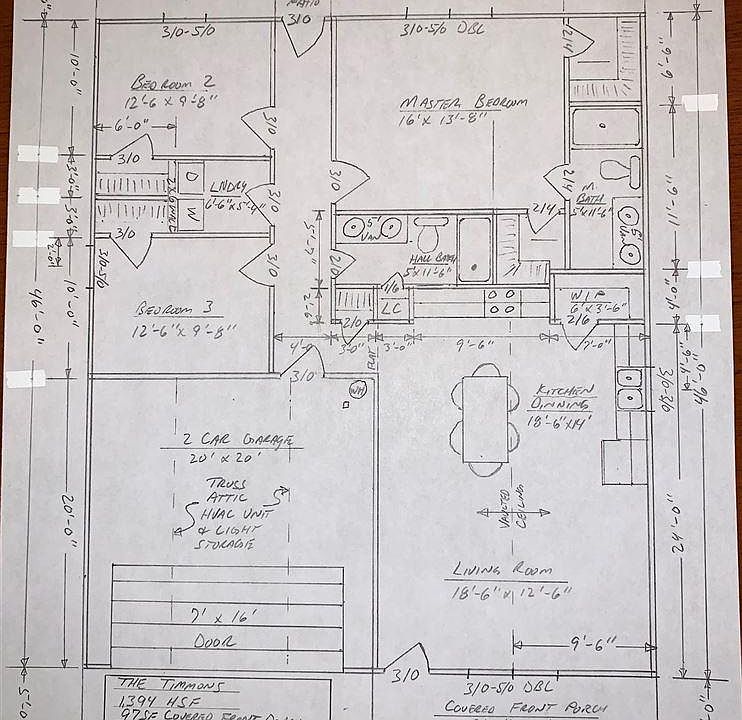 PATIO
3/0
3/0-5/0
3/0-5/0 DBL
2/4
10'-0"
9'-9"
BEDROOM 2
12'-6 x 9'-8"
MASTER BEDROOM
16' x 13'-8"
6'-0"
3/0
3/0
3/0
D
LNDRY
6'-6"x5'-4"
3/0
3/0
2/4
M. BATH
5'x11'-6"
11'-6"
W
3/0
2/4
5'
VAN
HALL BATH
5'x11'-6"
5'
VAN
3'-0"
3'-0"
2'-0"
5'-4"
3/0-5/0
3/0
2/0
1/6
46'-0"
10'-0"
BEDROOM 3
12'-6"x 9'-8"
2'-6"
LC
W/P
6'x3'-6"
4'-0"
2/0
2/6
4'-0
3'-0"
3'-0"
9'-6"
7'-0"
FLAT
3/0
WH
KITCHEN
DINNING
18'-6"x14'
3/0-3/0
4'-6"
46'-0"
2 CAR GARAGE
20' x 20'
TRUSS
ATTIC
HVAC UNIT
& LIGHT
STORAGE
VAULTED
CEILING
20'-0"
24'-0"
LIVING ROOM
18'-6" x 12'-6"
7' x 16'
DOOR
9'-6"
3/0
3/0-5/0 DBL
5'-0
THE TIMMONS
1394 HSF
97SF COVERED FRONT
COVERED FRONT PORCH